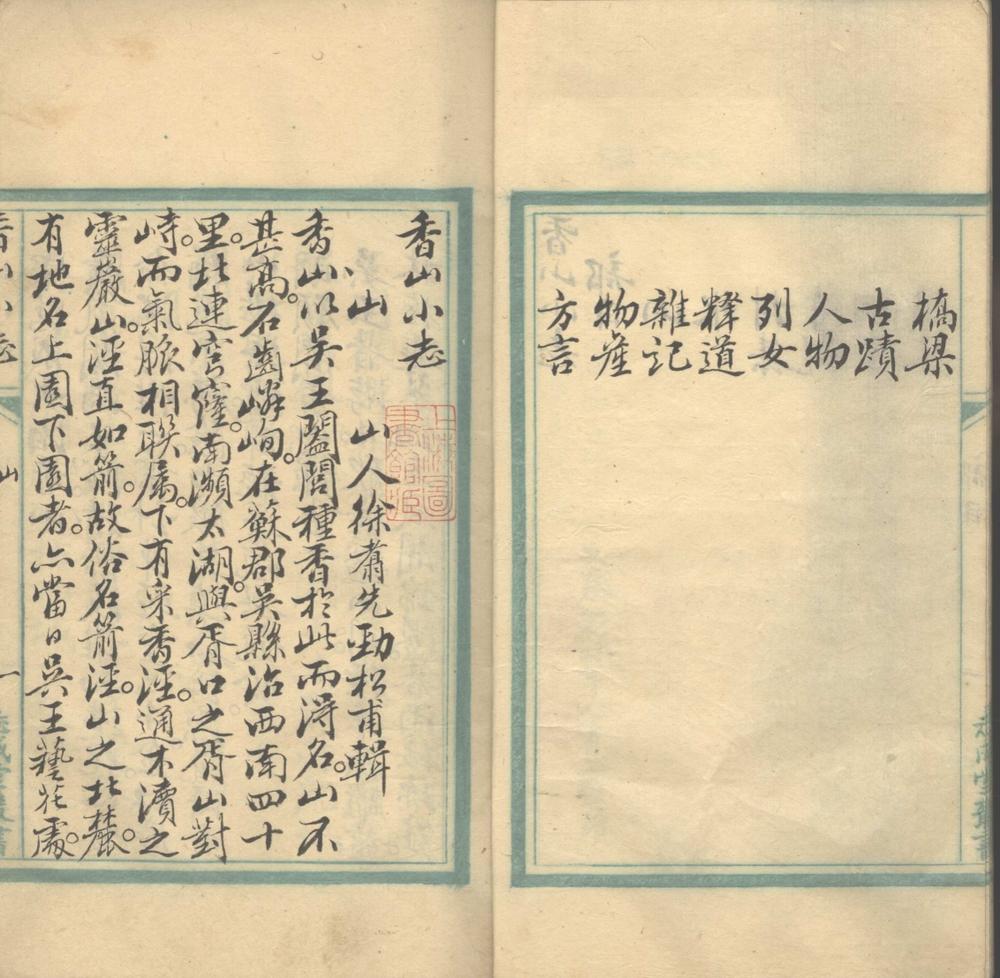 橋梁
古蹟
人物
列女
釋道
雜記
物產
方言
香山小志
山 山人徐翥先勁松甫輯
香山以吳王闔閭種香於此而得名。山不
甚高。石齒嶙峋。在蘇郡吳縣治西南四十
里。北連穹窿。南瀕太湖。與胥口之胥山對
峙。而氣脈相聯属。下有采香涇。通木瀆之
靈巖山。涇直如箭。故俗名箭涇。山之北麓。
有地名上園下園者。亦當日吳王藝花處。
香山小志
山
一
上海圖書館藏